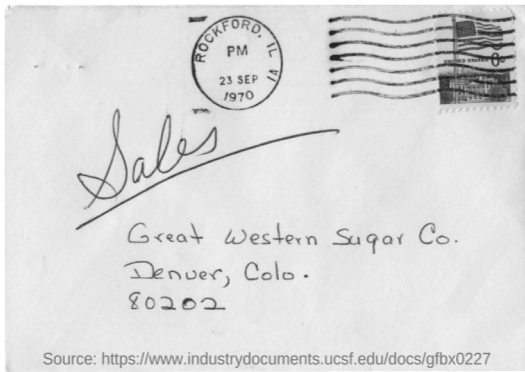 ROCKFORD, IL
PM
23 SEP
1970
UNITED STATES 6¢
Sales
Great Western Sugar Co.
Denver, Colo.
80202
Source: https://www.industrydocuments.ucsf.edu/docs/gfbx0227